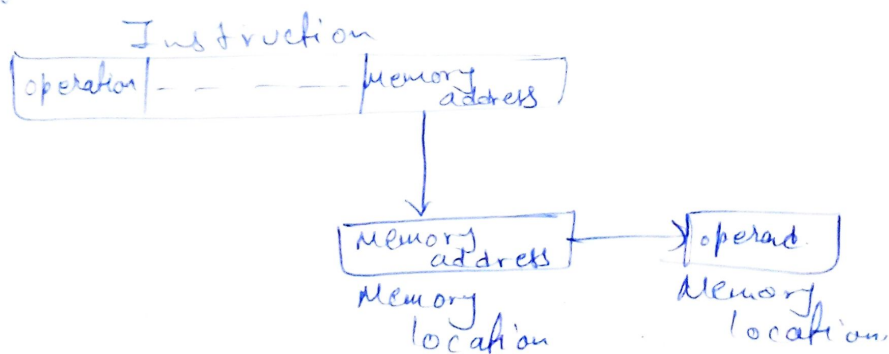 Instruction
operation - - - - Memory
address
Memory
address
operad.
Memory
location
Memory
location.